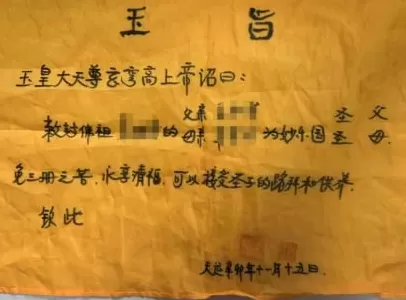 玉旨
玉皇大天尊玄穹高上帝诏曰:
父亲 圣父
敕封佛祖 的 为妙乐国
母亲 圣母
免三册之苦、永享清福,可以接受圣子的跪拜和供养
钦此
天运辛卯年十一月十五日